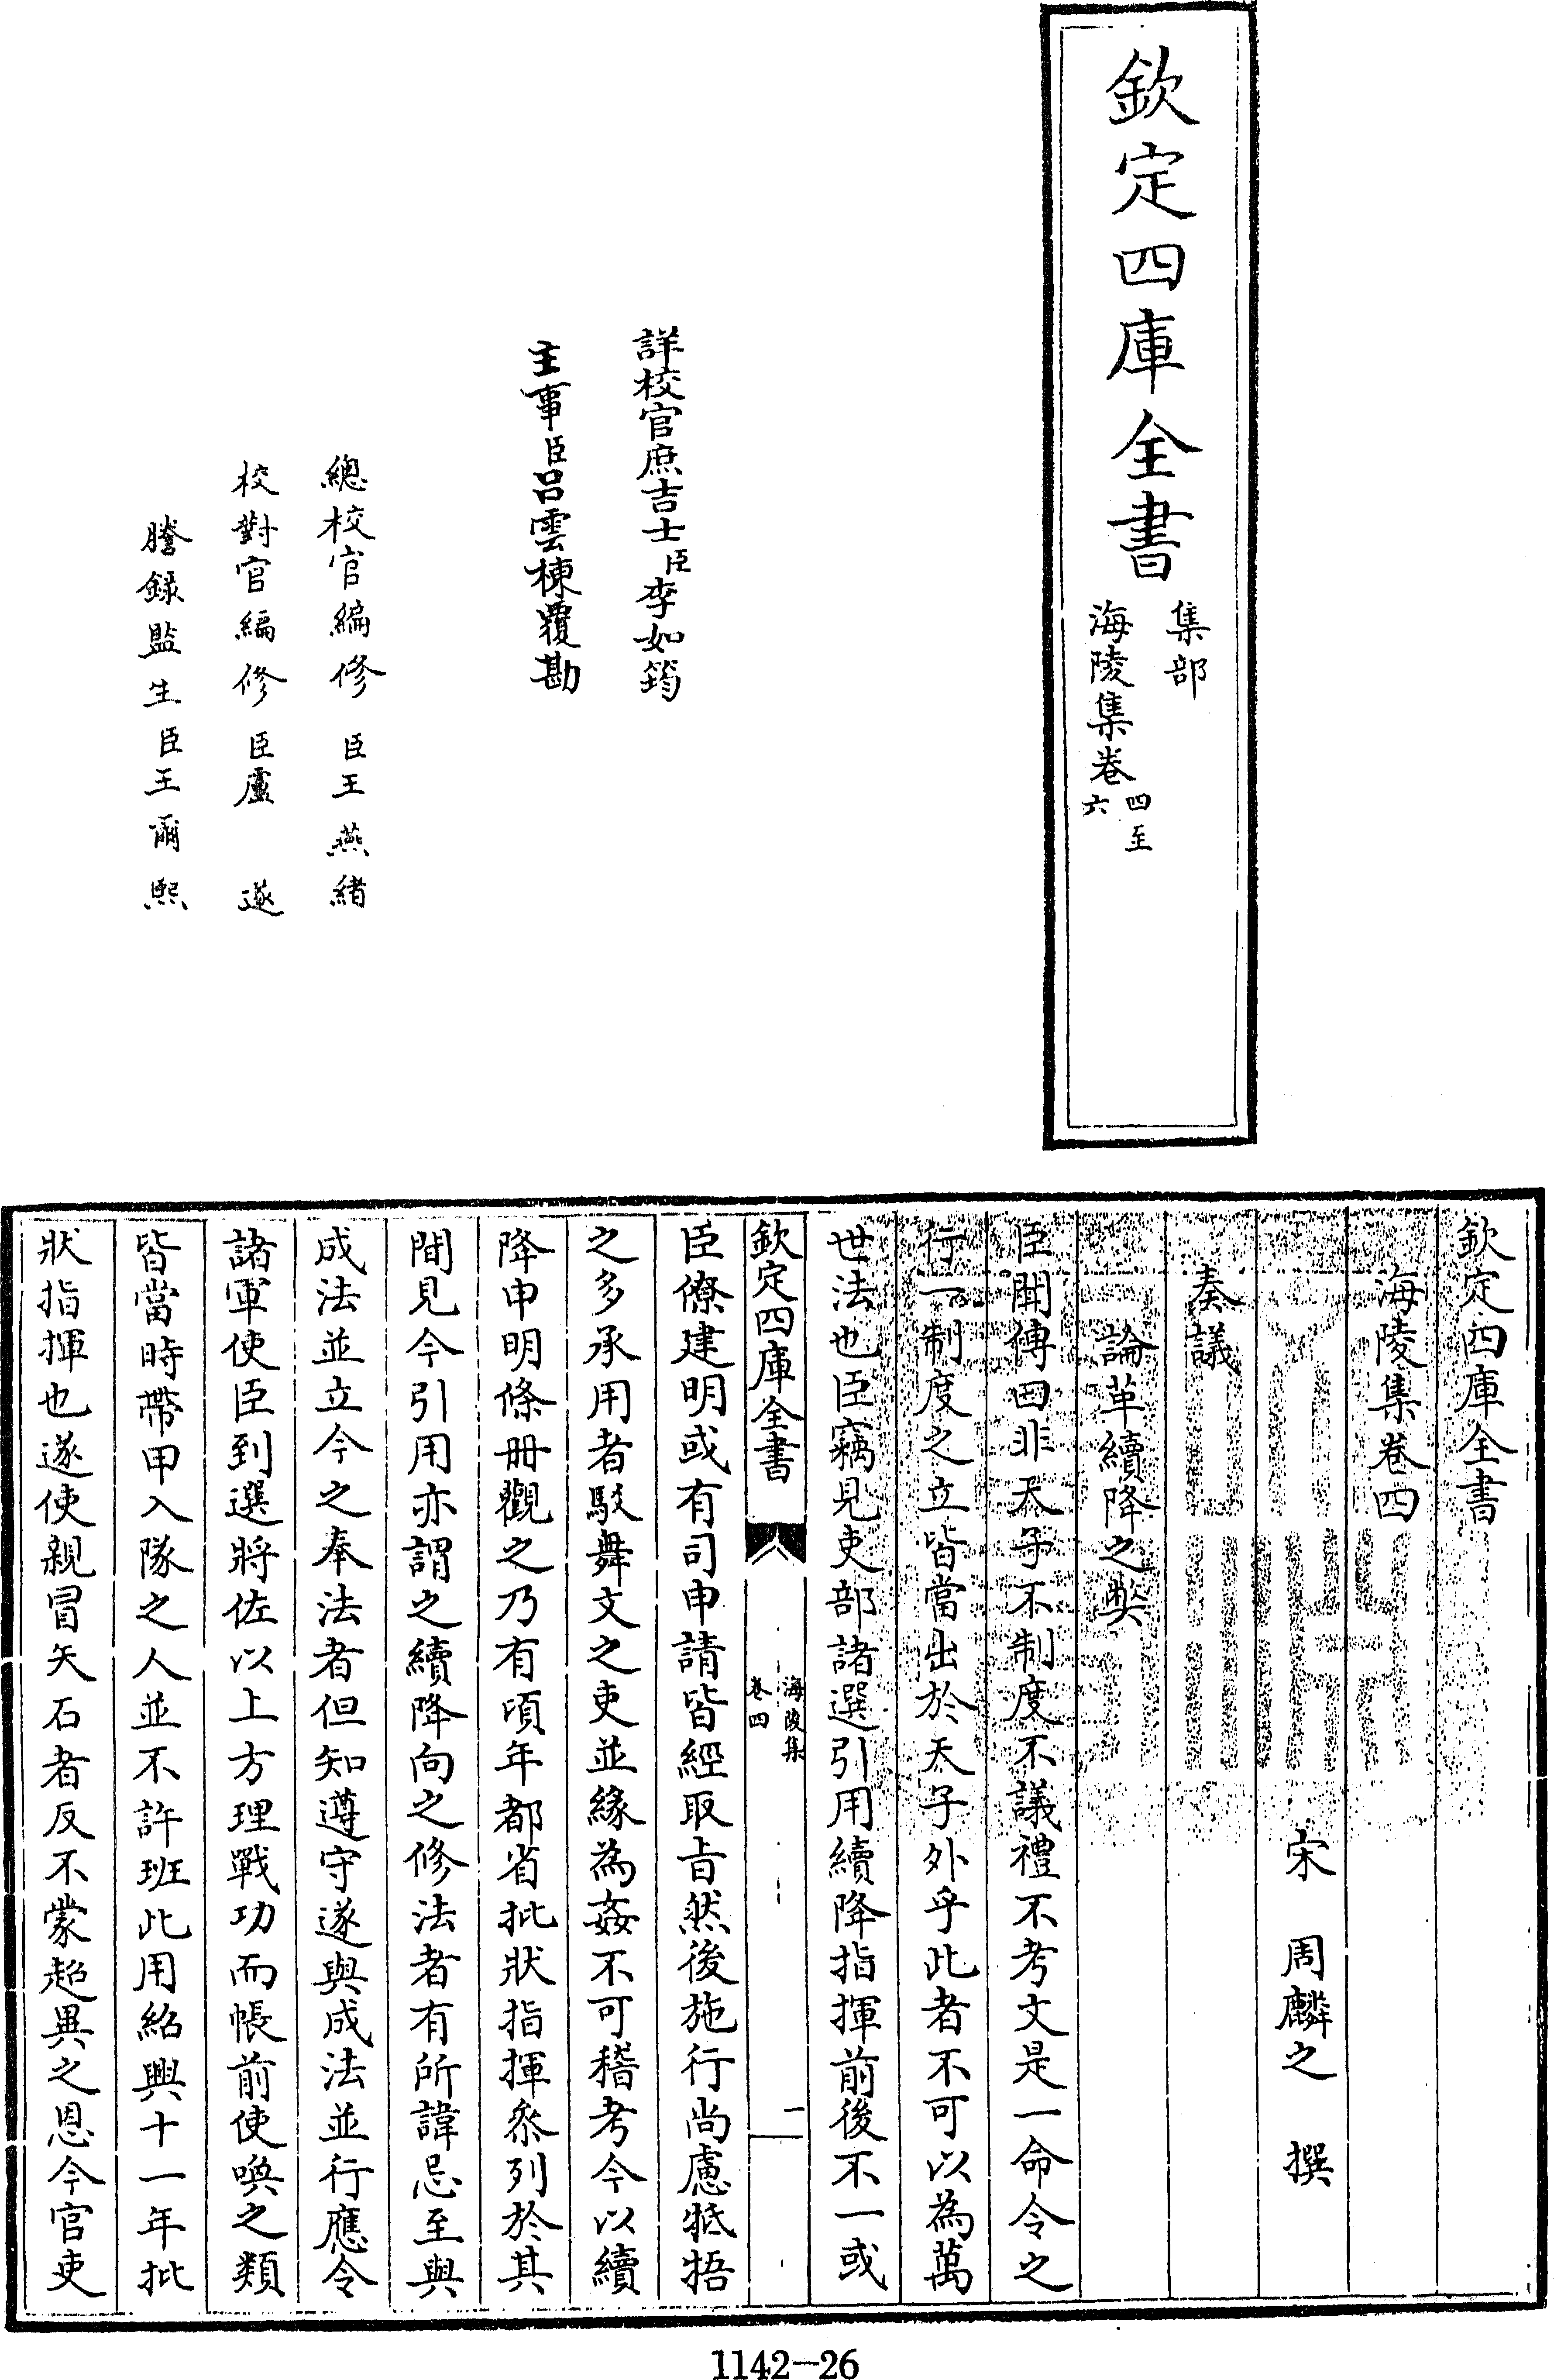 欽定四庫全書
集部
海陵集卷四至六
詳校官庶吉士臣李如筠
主事臣呂雲棟覆勘
總校官編修臣王燕緒
校對官編修臣盧遂
謄錄監生臣王爾熙
欽定四庫全書
海陵集卷四
宋 周麟之 撰
奏議
論革續降之弊
臣聞傳曰非天子不制度不議禮不考文是一命令之
行一制度之立皆當出於天子外乎此者不可以為萬
世法也臣竊見吏部諸選引用續降指揮前後不一或
欽定四庫全書
海陵集
卷四
一
臣僚建明或有司申請皆經取旨然後施行尚慮牴牾
之多承用者駮舞文之吏並緣為姦不可稽考今以續
降申明條冊觀之乃有頃年都省批狀指揮叅列於其
間見今引用亦謂之續降向之修法者有所諱忌至與
成法並立今之奉法者但知遵守遂與成法並行應令
諸軍使臣到選將佐以上方理戰功而帳前使喚之類
皆當時帶甲入隊之人並不許班此用紹興十一年批
狀指揮也遂使親冒矢石者反不蒙超異之恩今官吏
1142-26